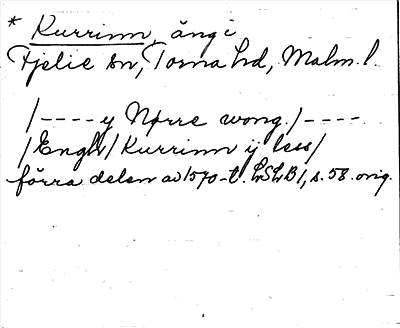 * Kurrinn, äng i
Fjelie sn, Torna hd, Malm. l.
/---- y Nørre wong. /----
/Engh/ Kurrinn ij less/
förra delen av 1570-t. LSLB 1, s. 58. orig.